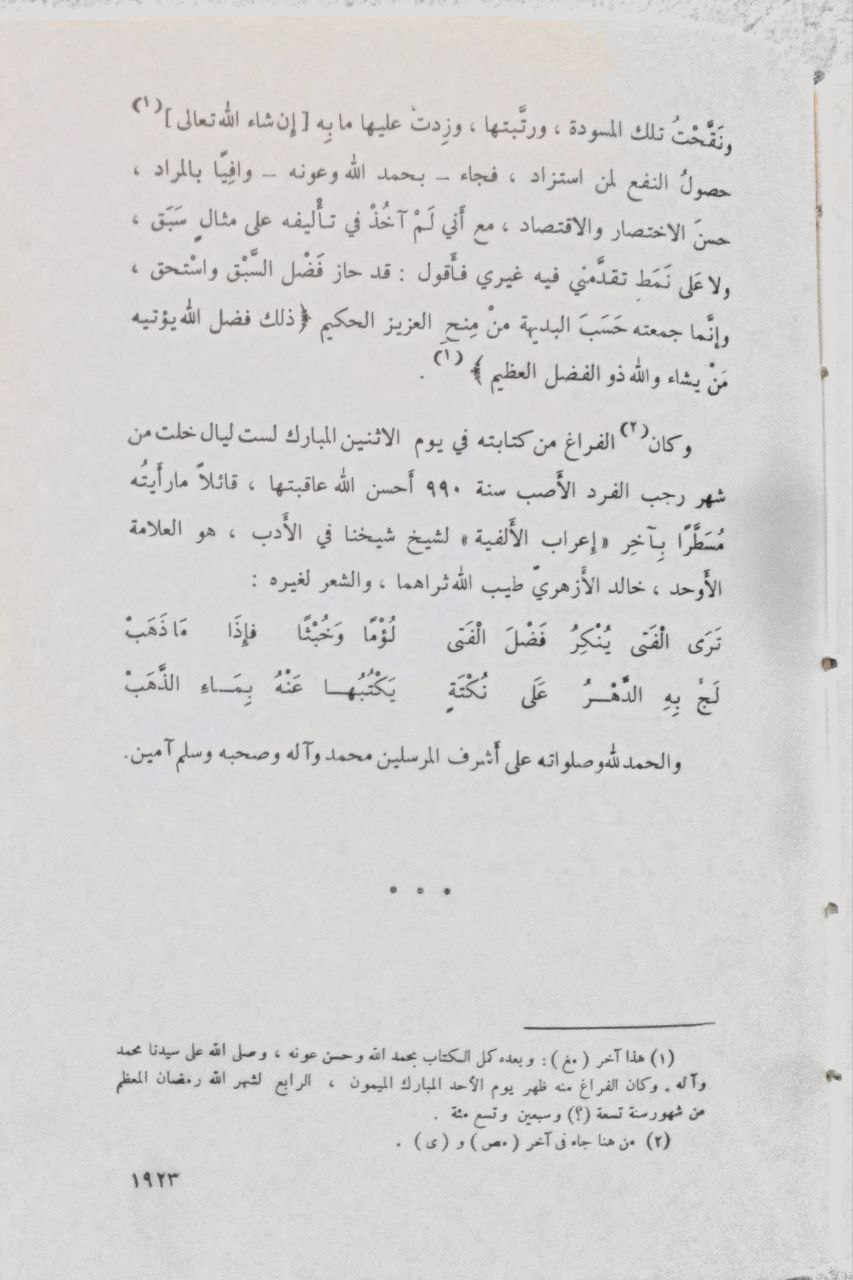 ونَقَّحْتُ تلك المسودة ، ورتَّبتها ، وزِدتُ عليها ما بِه [ إن شاء الله تعالى ](١)
حصولُ النفع لمن استزاد ، فجاء – بحمد الله وعونه – وافِيًا بالمراد ،
حسنَ الاختصار والاقتصاد ، مع أَني لَمْ آخُذْ في تأْليفه على مثالٍ سَبَق ،
ولا عَلى نَمَطٍ تقدَّمني فيه غيري فأَقول : قد حاز فَضْل السَّبْق واسْتحق ،
وإنَّما جمعته حَسَبَ البديهة مِنْ مِنحِ العزيز الحكيم ﴿ ذلك فضل الله يؤتيه
مَنْ يشاء والله ذو الفضل العظيم ﴾ (١) .
وكان(٢) الفراغ من كتابته في يوم الاثنين المبارك لست ليال خلت من
شهر رجب الفرد الأَصب سنة ٩٩٠ أَحسن الله عاقبتها ، قائلاً ما رأَيتُه
مُسَطَّرًا بِآخِر « إعراب الأَلفية » لشيخ شيخنا في الأَدب ، هو العلامة
الأَوحد ، خالد الأَزهريّ طيب الله ثراهما ، والشعر لغيره :
تَرَى الْفَتى يُنْكِرُ فَضْلَ الْفَتى لُؤْمًا وَخُبْثًا فإِذَا مَا ذَهَبْ
لَجَّ بِهِ الدَّهْـرُ عَلَى نُكْتَةٍ يَكْتُبُهـا عَنْهُ بِمَـاءِ الذَّهَبْ
والحمد لله وصلواته على أَشرف المرسلين محمد وآله وصحبه وسلم آمين.
* * *
(١) هذا آخر ( مغ ) : وبعده كمل الكتاب بحمد الله وحسن عونه ، وصلى الله على سيدنا محمد
وآله . وكان الفراغ منه ظهر يوم الأحد المبارك الميمون ، الرابع لشهر الله رمضان المعظم
من شهور سنة تسعة (؟) وسبعين وتسع مئة .
(٢) من هنا جاء فى آخر ( مص ) و ( ى ) .
١٩٢٣